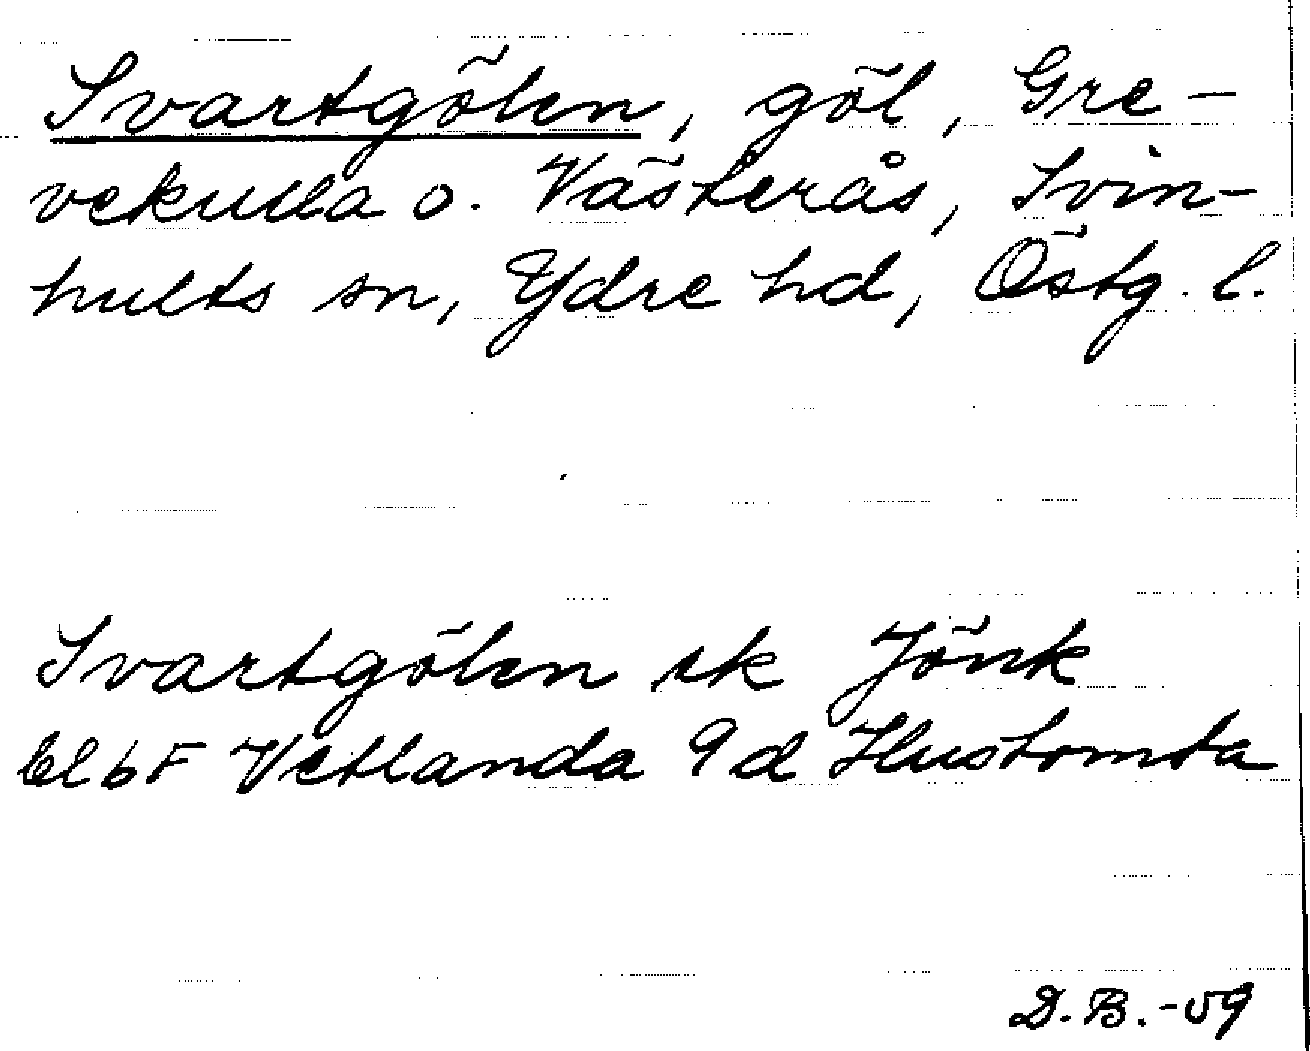 Svartgölen, göl, Gre-
vekulla o. Västerås, Svin-
hults sn, Ydre hd, Östg. l.
Svartgölen ek Jönk
bl 6F Vetlanda 9d Hustomta
D. B. -59